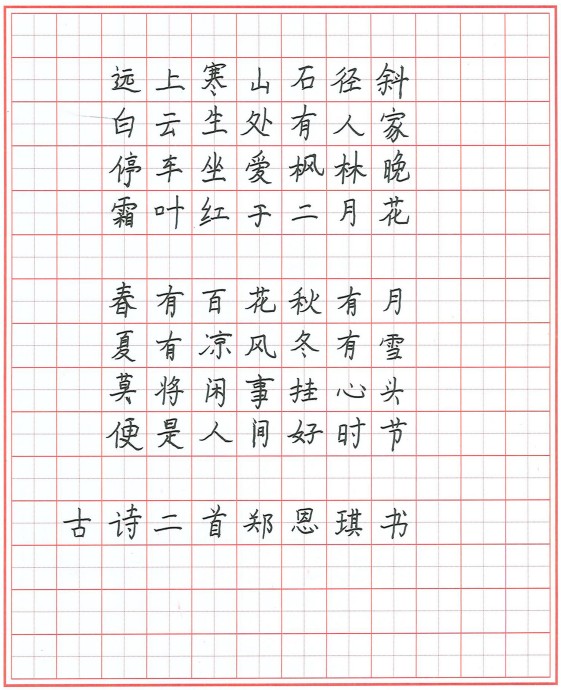 远上寒山石径斜
白云生处有人家
停车坐爱枫林晚
霜叶红于二月花
春有百花秋有月
夏有凉风冬有雪
莫将闲事挂心头
便是人间好时节
古诗二首郑恩琪书